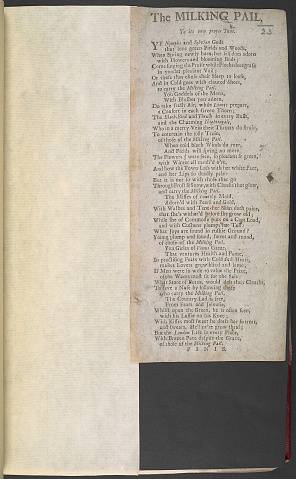 The MILKING PAIL,
23
To its own proper Tune.
YE Nymphs and Sylvan Gods
that love green Fields and Woods,
When Spring newly born, her self does adorn
with Flowers and blooming Buds;
Come sing in the Praise whilst Flocks do graze
in pleasant Vail;
Of those that choose their Sleep to lose,
And in Cold goes with clouted Shoes,
to carry the Milking Pail.
You Goddess of the Morn,
With Blushes you adorn,
And take fresh Air, while Linnets prepare,
a Consort in each Green Thorn;
The Black-Bird and Thrush in every Bush,
and the Charming Nightingale,
Who in a merry Vein their Throats do strain,
To entertain the jolly Train,
of those of the Milking Pail.
When cold bleak Winds do roar,
And Fields will spring no more,
The Flowers were seen, so pleasant & green,
with Winter all
And how the Town Lass with her white Face,
and her Lips so deadly pale:
But it is not so with those that go
Through Frost & Snow, with Cheeks that glow,
and carry the Milking Pail.
The Misses of courtly Mold,
Adorn'd with Pearl and Gold,
With Washes and Paint their Skins so taint,
that they're wither'd before they're old;
While she of Commode puts on a Cart-Load,
and with Cushions plumps her Tail:
What Joys are found in russet Gown?
Young plump and round, sweet and sound,
of those of the Milking Pail.
You Girls of Venus Game,
That ventures Health and Fame,
In practising Feats with Cold and Heats,
makes Lovers grow blind and lame:
If Men were so wise to value the Prize,
of the Wares most fit for Sale;
What Store of Beaus, would daub their Cloaths,
To save a Nose by following those
who carry the Milking Pail.
The Country Lad is free,
From Fears and Jealousie,
Whilst upon the Green, he is often seen,
with his Lasses on his Knee;
With Kisses most sweet he does her so treat,
and swears, He'll ne'er grow stale;
But the London Lass in every Place,
With Brazen Face despise the Grace,
of those of the Milking Pail.
FINIS.